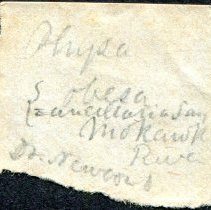 Physa
obesa
= ancillaria Say
Mohawk
River
Dr. Newcomb